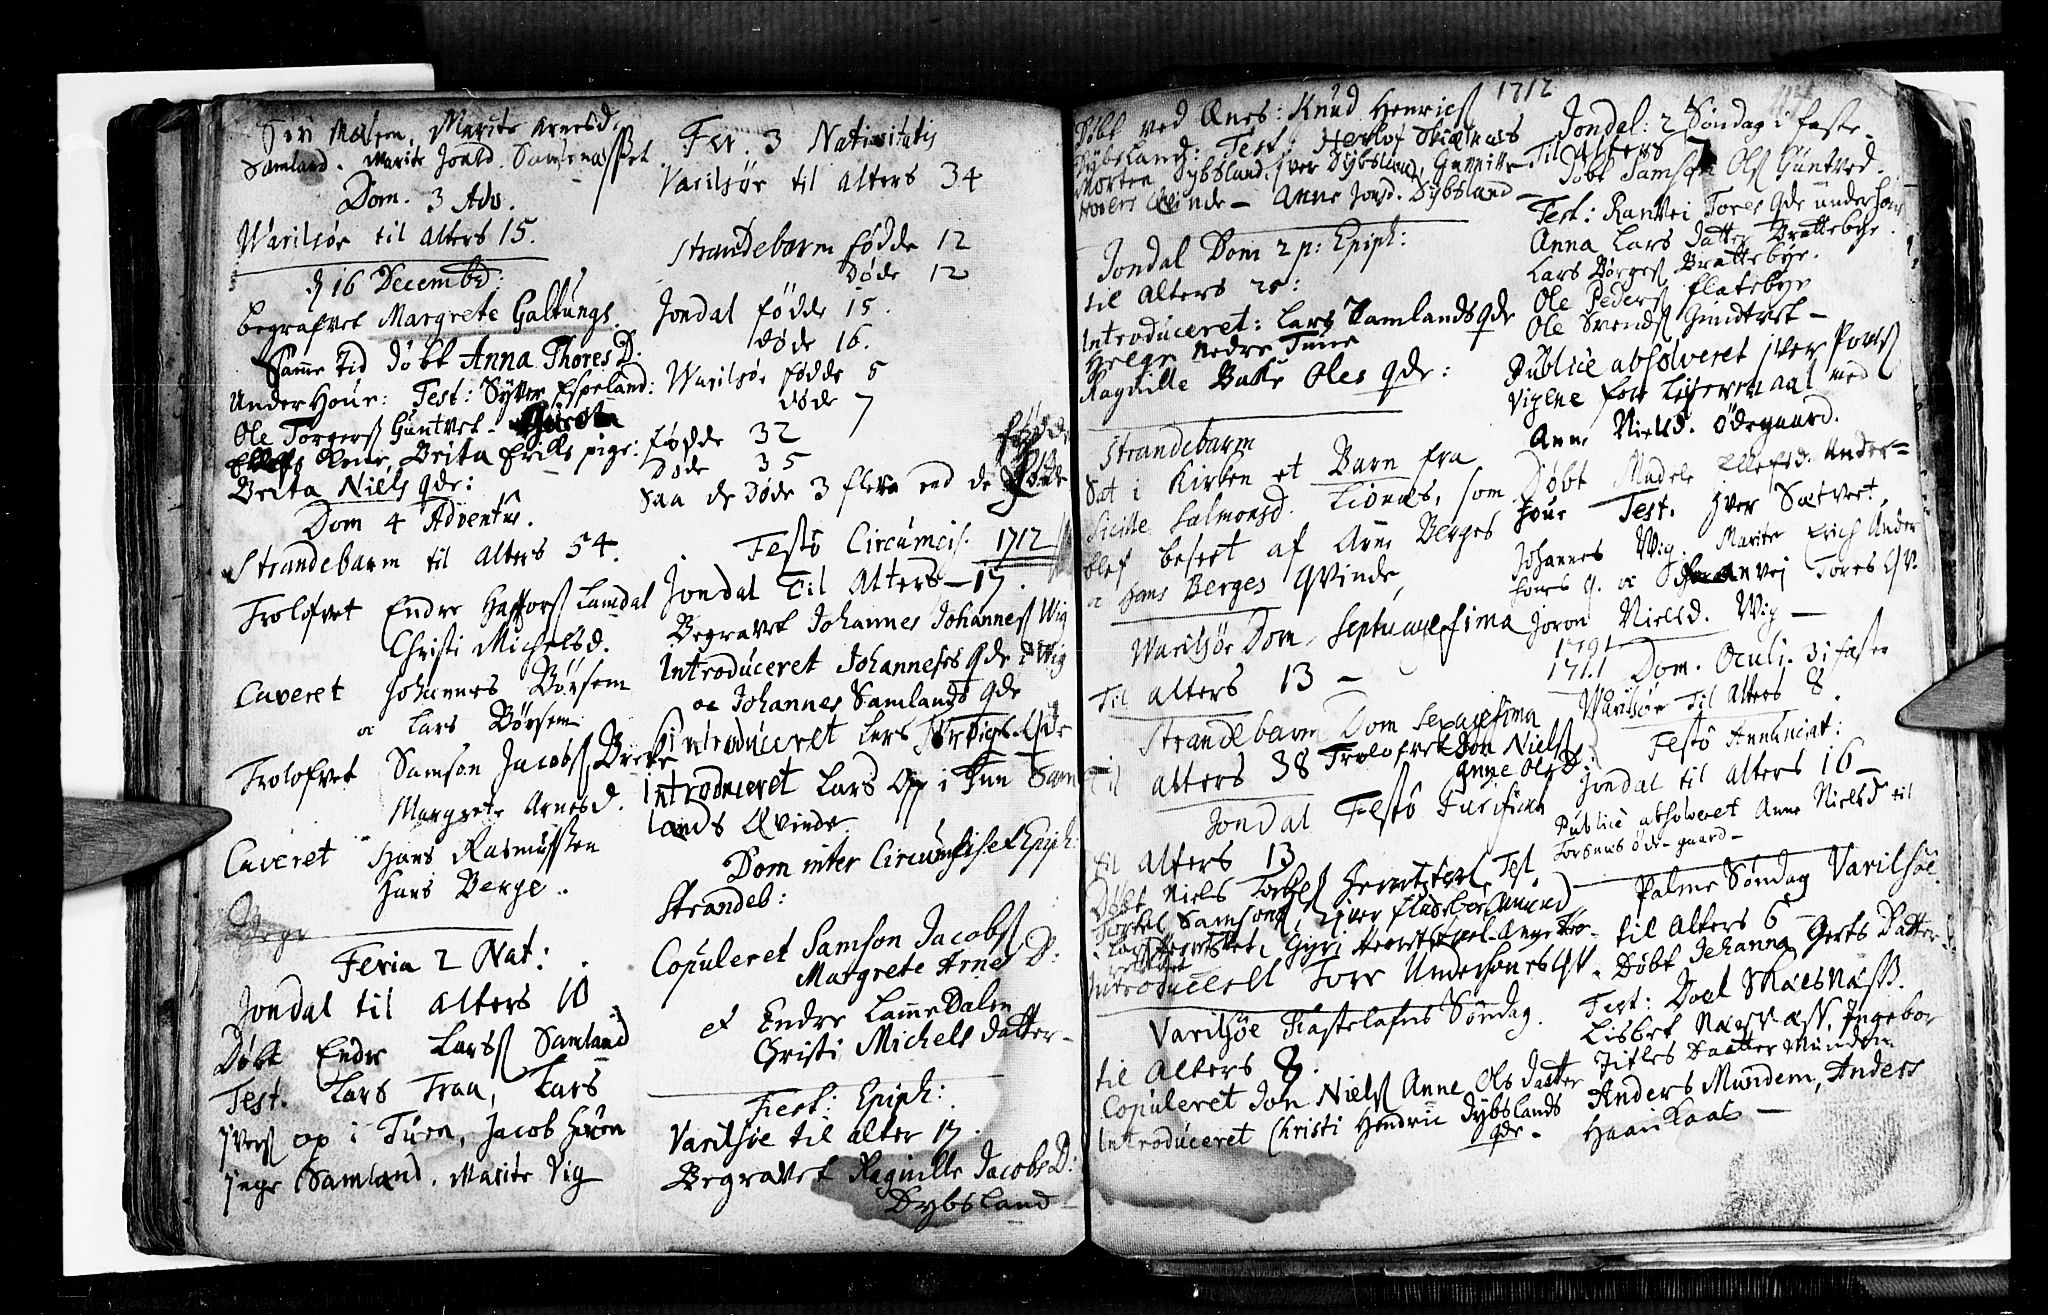 Siri Malsem, Marite Arnesd.
Samland. Marite Jonsd. Samsen
Dom. 3 Adv.
Warilsøe til alters 15.
d 16 Decembr:
begrafvet Margrete Galtungs.
Samme Tid døbt Anna Thores D.
Under Houe: Test: Syver Espeland:
Ole Torgerss Guntvet.
Brita Eriks pige:
Brita Niels qde:
Dom 4 Adventus.
Strandebarm til alters 54.
Trolofvet Endre Hafforss Lamdal
Christi Michelsd.
Caveret Johannes Børsem
oc Lars Børsem
Trolofvet Samson Jacobss Breke
Margrete Arnesd.
Caveret Hans Rasmussen
Hans Berge.
Begr
Feria 2 Nat:
Jondal til alters 10
Døbt Endre Larss Samland
Test. Lars Traa, Lars
Jverss op i Tuen, Jacob Houen
Jnge Samland. Marite Vig
Fer. 3 Nativitatis
Varilsøe til alters 34
Strandebarm fødde 12
døde 12
Jondal fødde 15.
døde 16.
Warilsøe fødde 5
døde 7
fødde 32
døde 35
Saa de døde 3 flere end de fødde
Festo Circumcis. 1712
Jondal Til Alters — 17.
Begravet Johannes Johanness Wig
Introduceret Johanneses qde i Wig
oc Johannes Samlands qde
Introduceret Lars qde
Introduceret Lars Op i Tun Sam
lands Qvinde
Dom inter Circumcis et Epiph:
Strandeb:
Copuleret Samson Jacobss
Margrete Arnes D:
et Endre LammeDalen
Christi Michels datter —
Fest: Epiph:
Varilsøe til alter 17.
Begravet Ragnille Jacobs D:
Dybsland
1712
Døbt ved Ænes: Knud Henricss
Dybsland: Test: Herlof Skiælnes
Morten Dybsland, Jver Dybsland, Gunnille
Qvinde — Anne Jonsd. Dybsland —
Jondal Dom 2 p: Epiph:
til Alters 20:
Introduceret: Lars Samlands qde
Nedre Tune
Ragnille Bakke Oles qde:
Strandebarm
Sat i Kirken et Barn fra
Sicille Salmonsd. som
blef besert af Anne Berges
oc Hans Berges Qvinde,
Warilsøe Dom. Septuagesima
Til alters 13 —
Strandebarm Dom Sexagesima
Til alters 38 Trolofvet Jon Nielss
Anne Ols D:
Jondal Festo Purificat
til alters 13
Døbt Niels Test
Torkel Samsons,
Introduceret Tore Underhoues QV
Varilsøe Fastelafns Søndag.
til Alters 8.
Copuleret Jon Nielss Anne Ols datter
Introduceret Christi Hendric Dybslands
qde.
Jondal: 2 Søndag i faste —
Til Alters 7
Døbt Samson Olss Guntved.
Test: Ranvei Tores qde underhou
Anna Lars datter Brattebye.
Lars Børgess Brattebye.
Ole Pederss Flatebye
Ole Svendss Gundtvet —
Publice absolveret Jver Povelss
Vigene for Leiermaal med
Anne Nielsd. Ødegaard.
Døbt Madele Ellefsd. Under-
houe Test. Jver Sætvet,
Johannes Wig. Marite Erichs Under
houes q. oc Ranvei Tores QV.
Joron Nielsd. Wig —
1711 Dom. Oculi. 3 i faste
Warilsøe Til Alters 8.
Festo Annunciat:
Jondal til alters 16 —
Publice absolveret Anne Nielsd til
Torsnes øde-gaard —
Palme Søndag Varilsøe.
til Alters 6 —
Døbt Jehanna Gerts Datter
Test: Doel Skaelsnæss.
Lisbet Næsnæss, Jngebor
Jitles Daatter Munden
Anders Mundem, Anders
Haaikaas —